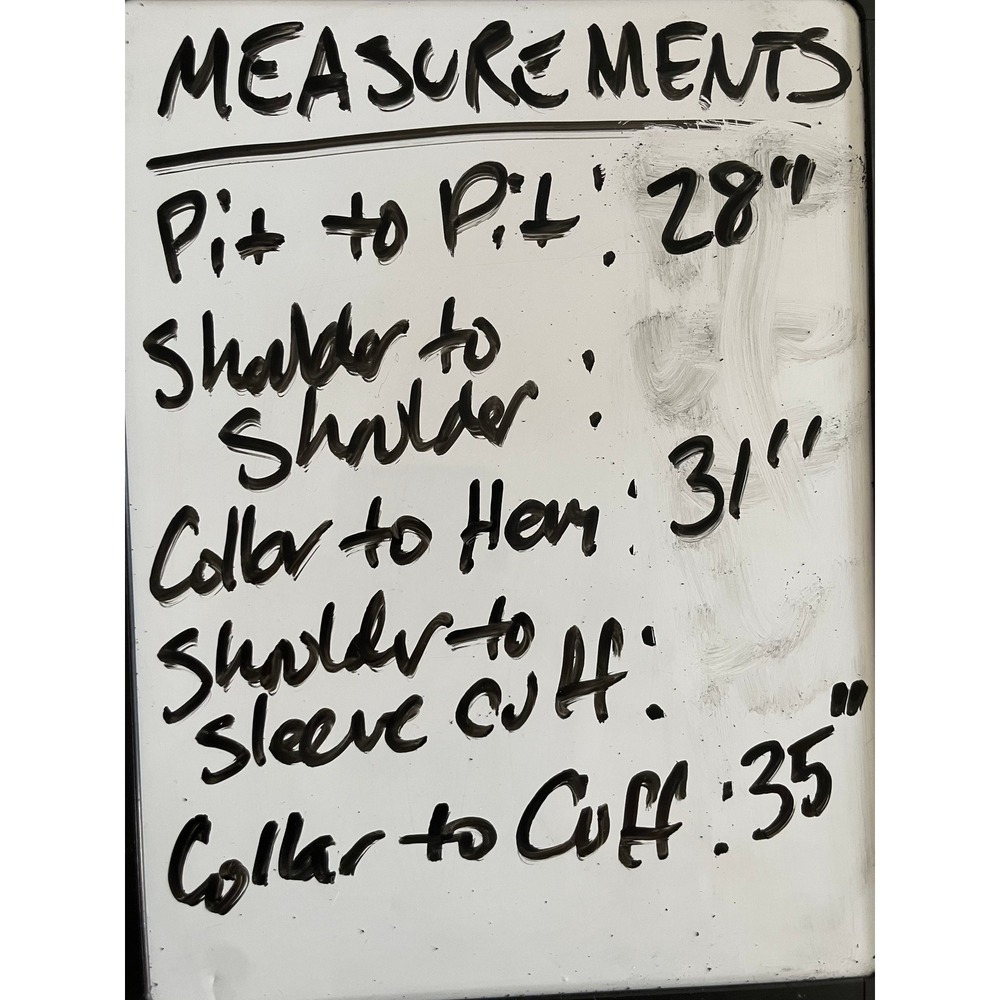 MEASUREMENTS
Pit to Pit : 28"
Shoulder to
Shoulder :
Collar to Hem : 31"
Shoulder to
sleeve cuff :
Collar to Cuff : 35"